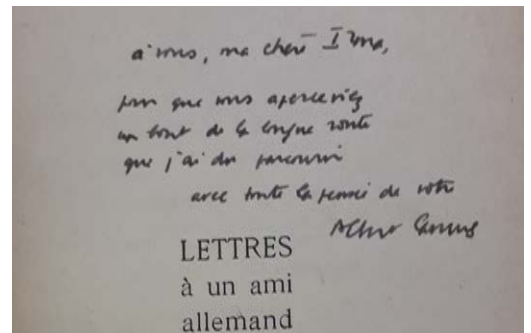 à vous, ma chère Irma,
pour que vous aperceviez
un bout de la longue route
que j'ai du parcourir
avec toute la pensée de votre
Albert Camus
LETTRES
à un ami
allemand